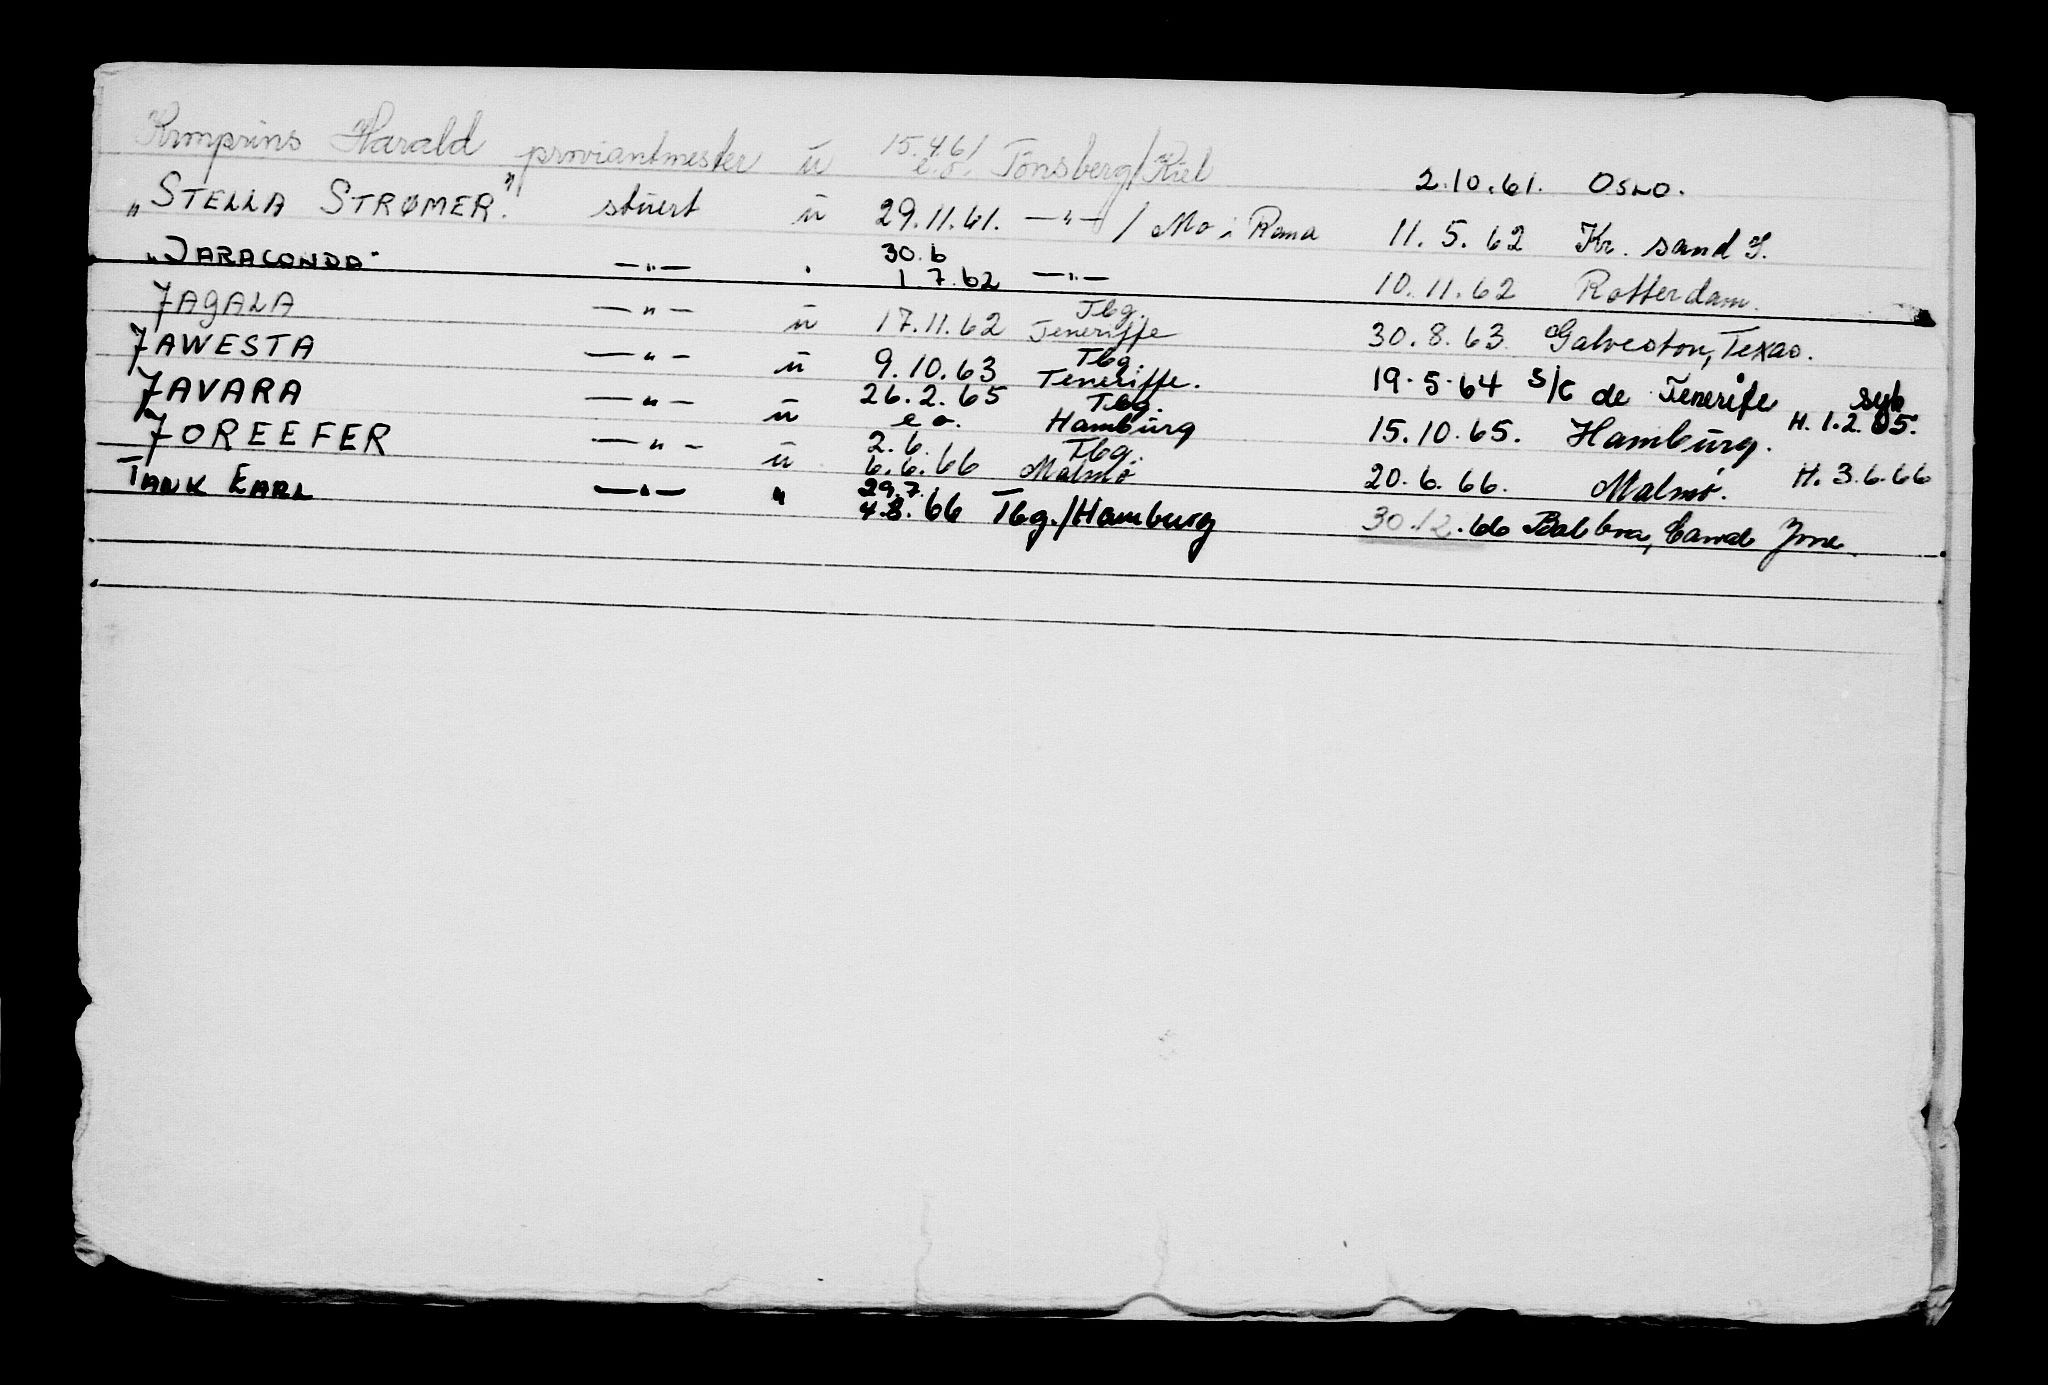 Kronprins Harald proviantmester u 15.4.61 e.o. Tønsberg/Kiel 2.10.61. OSLO.
"STELLA STRØMER." stuert u 29.11.61. —"— / Mo i Rana 11.5.62 Kr. sand S.
"JARACONDA" —"— 30.6 1.7.62 —"— 10.11.62 Rotterdam.
JAGALA —"— u 17.11.62 Tbg. Teneriffe 30.8.63 Galveston, Texas.
JAWESTA —"— u 9.10.63 Tbg. Teneriffe. 19.5.64 S/C de Tenerife syk
JAVARA —"— u 26.2.65 e.o. Tbg. Hamburg 15.10.65. Hamburg. H. 1.2.65.
JOREEFER —"— u 2.6. 6.6.66 Tbg. Malmø 20.6.66. Malmø. H. 3.6.66
TANK EARL —"— " 29.7. 4.8.66 Tbg./Hamburg 30.12.66 Balboa, Canal Zone.